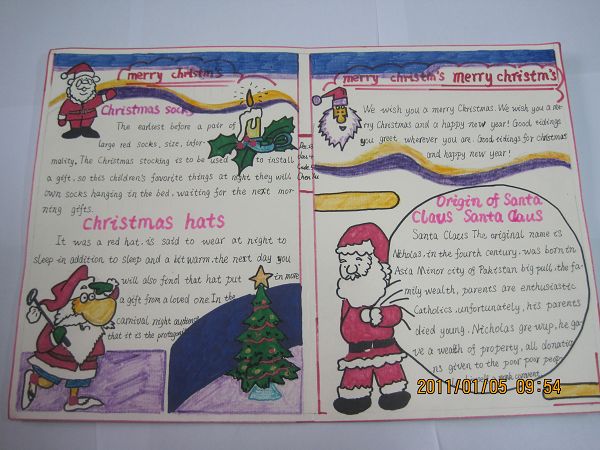 merry christm's
Christmas socks
The earliest before a pair of
large red socks, size, infor-
mality. The Christmas stocking is to be used to install
a gift, so this children's favorite things at night they will
own socks hanging in the bed, waiting for the next mor-
ning gifts.
Christmas hats
It was a red hat, is said to wear at night to
sleep in addition to sleep and a bit warm. the next day you
will also find that hat put in more
a gift from a loved one. In the
carnival night
that it is the
merry christm's merry christm's
We wish you a merry Christmas. We wish you a me-
rry Christmas and a happy new year! Good tidings
you greet wherever you are. Good tidings for christmas
and happy new year!
Origin of Santa
Claus Santa Claus
Santa Claus The original name is
Nicholas, in the fourth century, was born in
Asia Minor city of Pakistan big pull. the fa-
mily wealth, parents are enthusiastic
Catholics. unfortunately, his parents
died young. Nicholas grew up, he ga-
ve a wealth of property, all donatio-
ns given to the poor poor people
2011/01/05 09:54